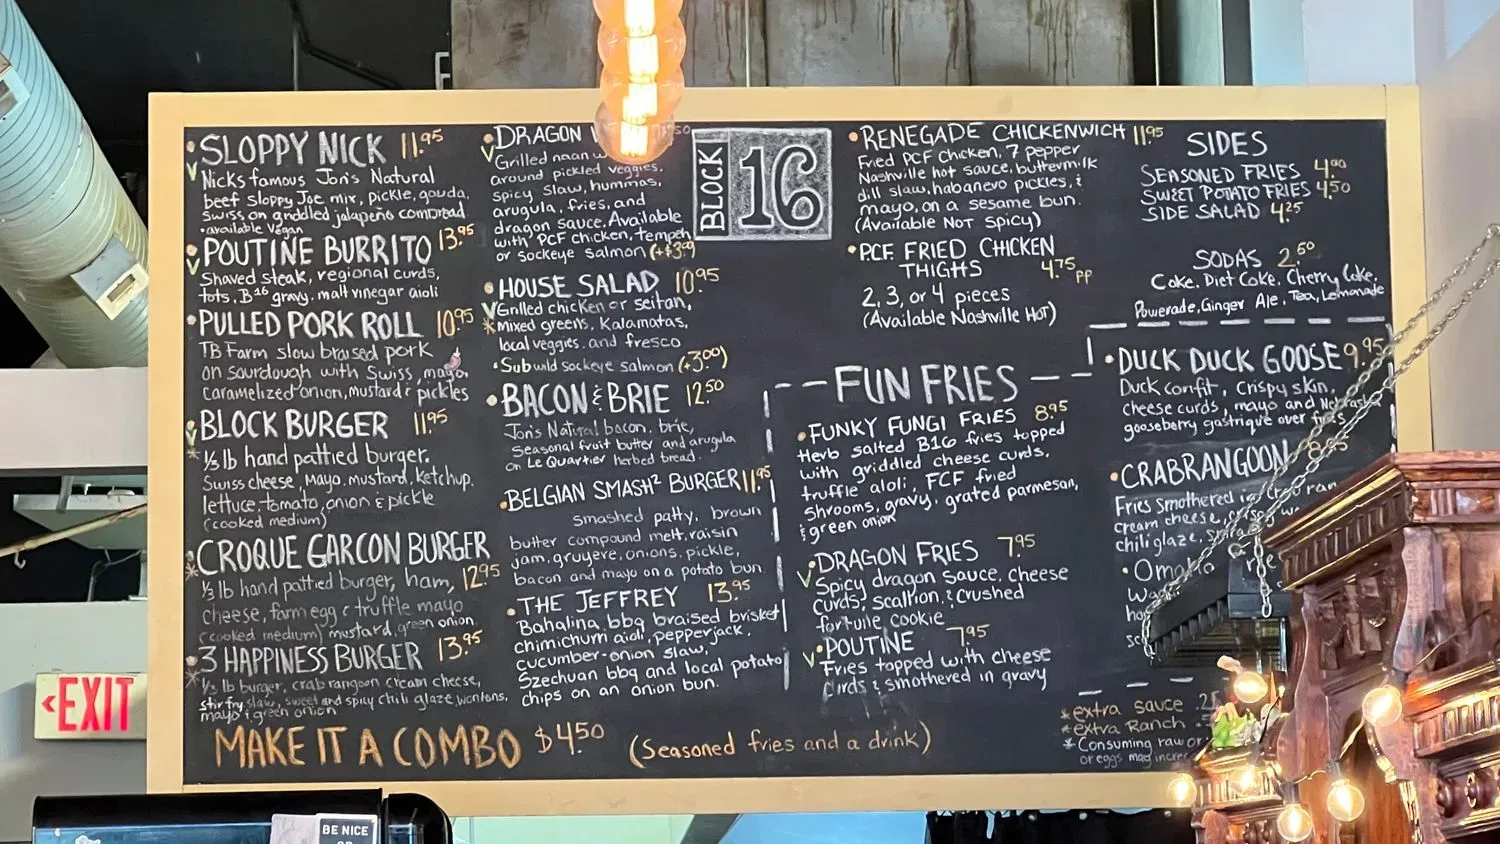 SLOPPY NICK 11.95
Nicks famous Jon's Natural
beef sloppy Joe mix, pickle, gouda,
Swiss on griddled jalapeño cornbread.
•available Vegan
POUTINE BURRITO 13.95
Shaved steak, regional curds,
tots, B16 gravy, malt vinegar aioli
PULLED PORK ROLL 10.95
TB Farm slow braised pork
on sourdough with Swiss, mayo,
Caramelized onion, mustard & pickles
BLOCK BURGER 11.95
1/3 lb hand pattied burger.
Swiss cheese, Mayo, mustard, Ketchup,
lettuce, tomato, onion & pickle
(cooked medium)
CROQUE GARCON BURGER
1/3 lb hand pattied burger, ham, 12.95
cheese, farm egg & truffle mayo
(cooked medium) mustard, green onion
3 HAPPINESS BURGER 13.95
1/3 lb burger, crab rangoon cream cheese,
stir fry slaw, sweet and spicy chili glaze, wontons,
mayo & green onion
MAKE IT A COMBO $4.50 (Seasoned fries and a drink)
DRAGON
Grilled naan
around pickled veggies,
spicy slaw, hummas,
arugula, fries, and
dragon sauce. Available
with PCF Chicken, Tempeh
or Sockeye Salmon (+$3.00)
HOUSE SALAD 10.95
Grilled chicken or seitan,
Mixed greens, Kalamatas,
local veggies, and fresco
•Sub wild sockeye salmon (+3.00)
BACON & BRIE 12.50
Jon's Natural bacon, brie,
Seasonal fruit butter and arugula
on Le Quartier herbed bread.
BELGIAN SMASH² BURGER 11.95
smashed patty, brown
butter compound melt, raisin
jam, gruyere, onions, pickle,
bacon and mayo on a potato bun.
THE JEFFREY 13.95
Bahalina bbq braised brisket
chimichurri aioli, pepperjack,
cucumber-onion slaw,
Szechuan bbq and local potato
chips on an onion bun.
BLOCK 16
RENEGADE CHICKENWICH 11.95
Fried PCF Chicken, 7 pepper
Nashville hot sauce, buttermilk
dill slaw, habanero pickles, &
mayo, on a sesame bun.
(Available NOT Spicy)
PCF FRIED CHICKEN
THIGHS 4.75 pp
2, 3, or 4 pieces
(Available Nashville HOT)
FUN FRIES
FUNKY FUNGI FRIES 8.95
Herb salted B16 fries topped
with griddled cheese curds,
truffle aioli, FCF fried
shrooms, gravy, grated parmesan,
& green onion
DRAGON FRIES 7.95
Spicy dragon sauce, cheese
curds, scallion, & crushed
fortune cookie
POUTINE 7.95
Fries topped with cheese
curds & smothered in gravy
SIDES
SEASONED FRIES 4.00
SWEET POTATO FRIES 4.50
SIDE SALAD 4.25
SODAS 2.50
Coke, Diet Coke, Cherry Coke,
Powerade, Ginger Ale, Tea, Lemonade
DUCK DUCK GOOSE 9.95
Duck confit, Crispy skin,
cheese curds, mayo and Nebraska
gooseberry gastrique over fries
CRABRANGOON
Fries Smothered in
cream cheese,
chili glaze,
*extra sauce
*extra Ranch
*Consuming raw or
or eggs may
EXIT
BE NICE
OR